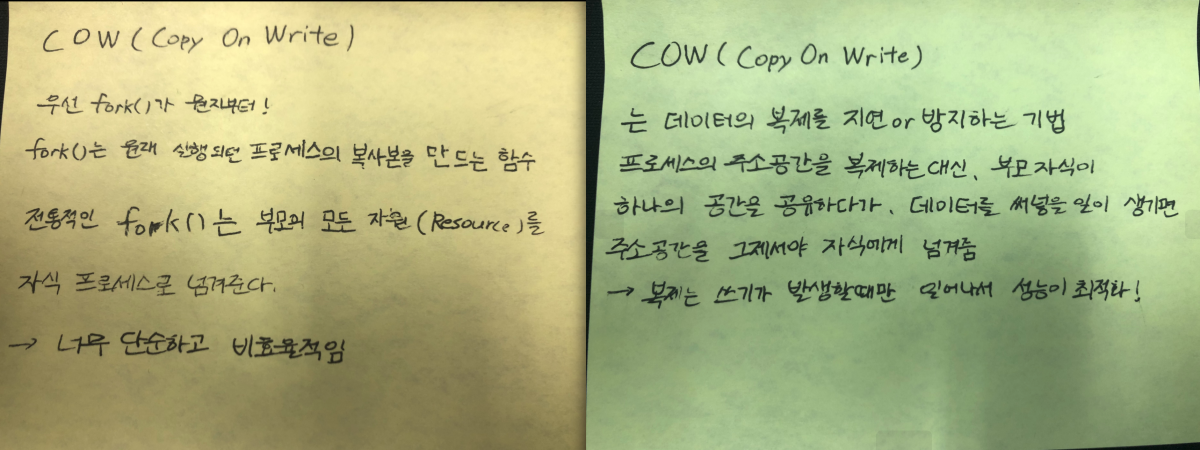 COW (Copy On Write)
우선 fork()가 뭔지부터!
fork()는 원래 실행되던 프로세스의 복사본을 만드는 함수
전통적인 fork()는 부모의 모든 자원(Resource)를
자식 프로세스로 넘겨준다.
→ 너무 단순하고 비효율적임
COW (Copy On Write)
는 데이터의 복제를 지연 or 방지하는 기법
프로세스의 주소공간을 복제하는 대신, 부모 자식이
하나의 공간을 공유하다가, 데이터를 써넣을 일이 생기면
주소공간을 그제서야 자식에게 넘겨줌
→ 복제는 쓰기가 발생할때만 일어나서 성능이 최적화!